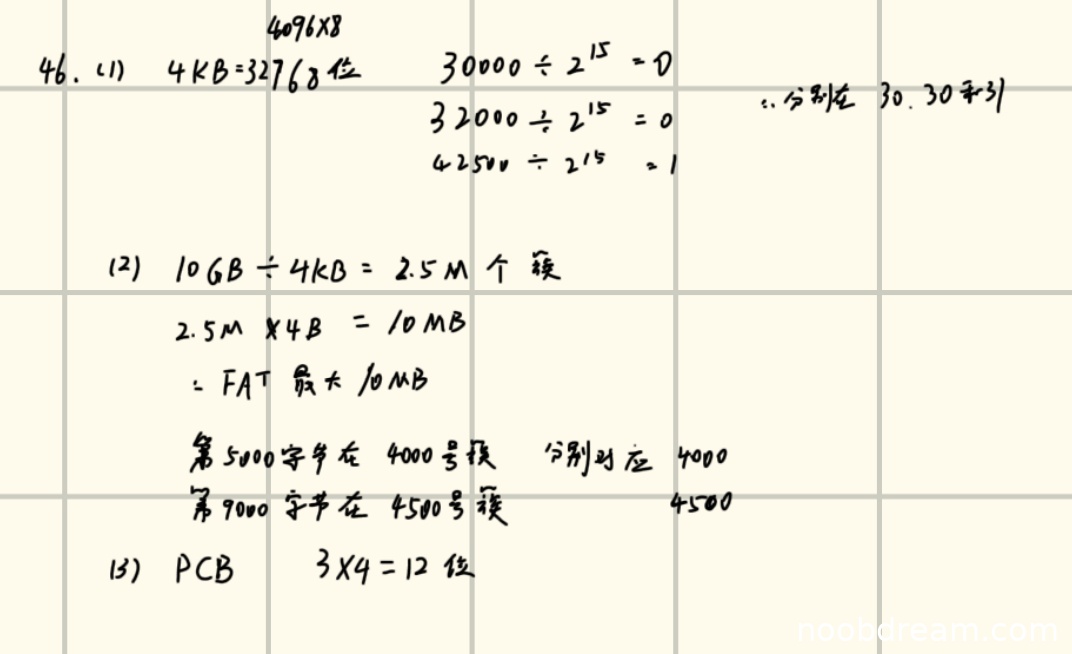 4096×8
46. (1) 4KB=32768位 30000 ÷ 2^15 = 0
32000 ÷ 2^15 = 0 ∴ 分别在 30. 30和31
42500 ÷ 2^15 = 1
(2) 10GB ÷ 4KB = 2.5M 个 簇
2.5M ×4B = 10MB
∴ FAT 最大 10MB
第5000字节在 4000号簇 分别对应 4000
第9000字节在 4500号簇 4500
(3) PCB 3×4=12位
noobdream.com